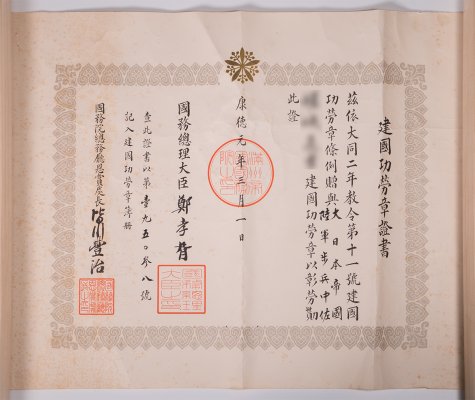 建國功勞章證書
茲依大同二年教令第十一號建國
功勞章條例贈與大日本帝國
陸軍步兵中佐
建國功勞章以彰勞勳
此證
康德元年三月一日
國務總理大臣 鄭孝胥
查此證書以第壹九五〇參八號
記入建國功勞章簿冊
國務院總務廳恩賞處長 皆川豐治